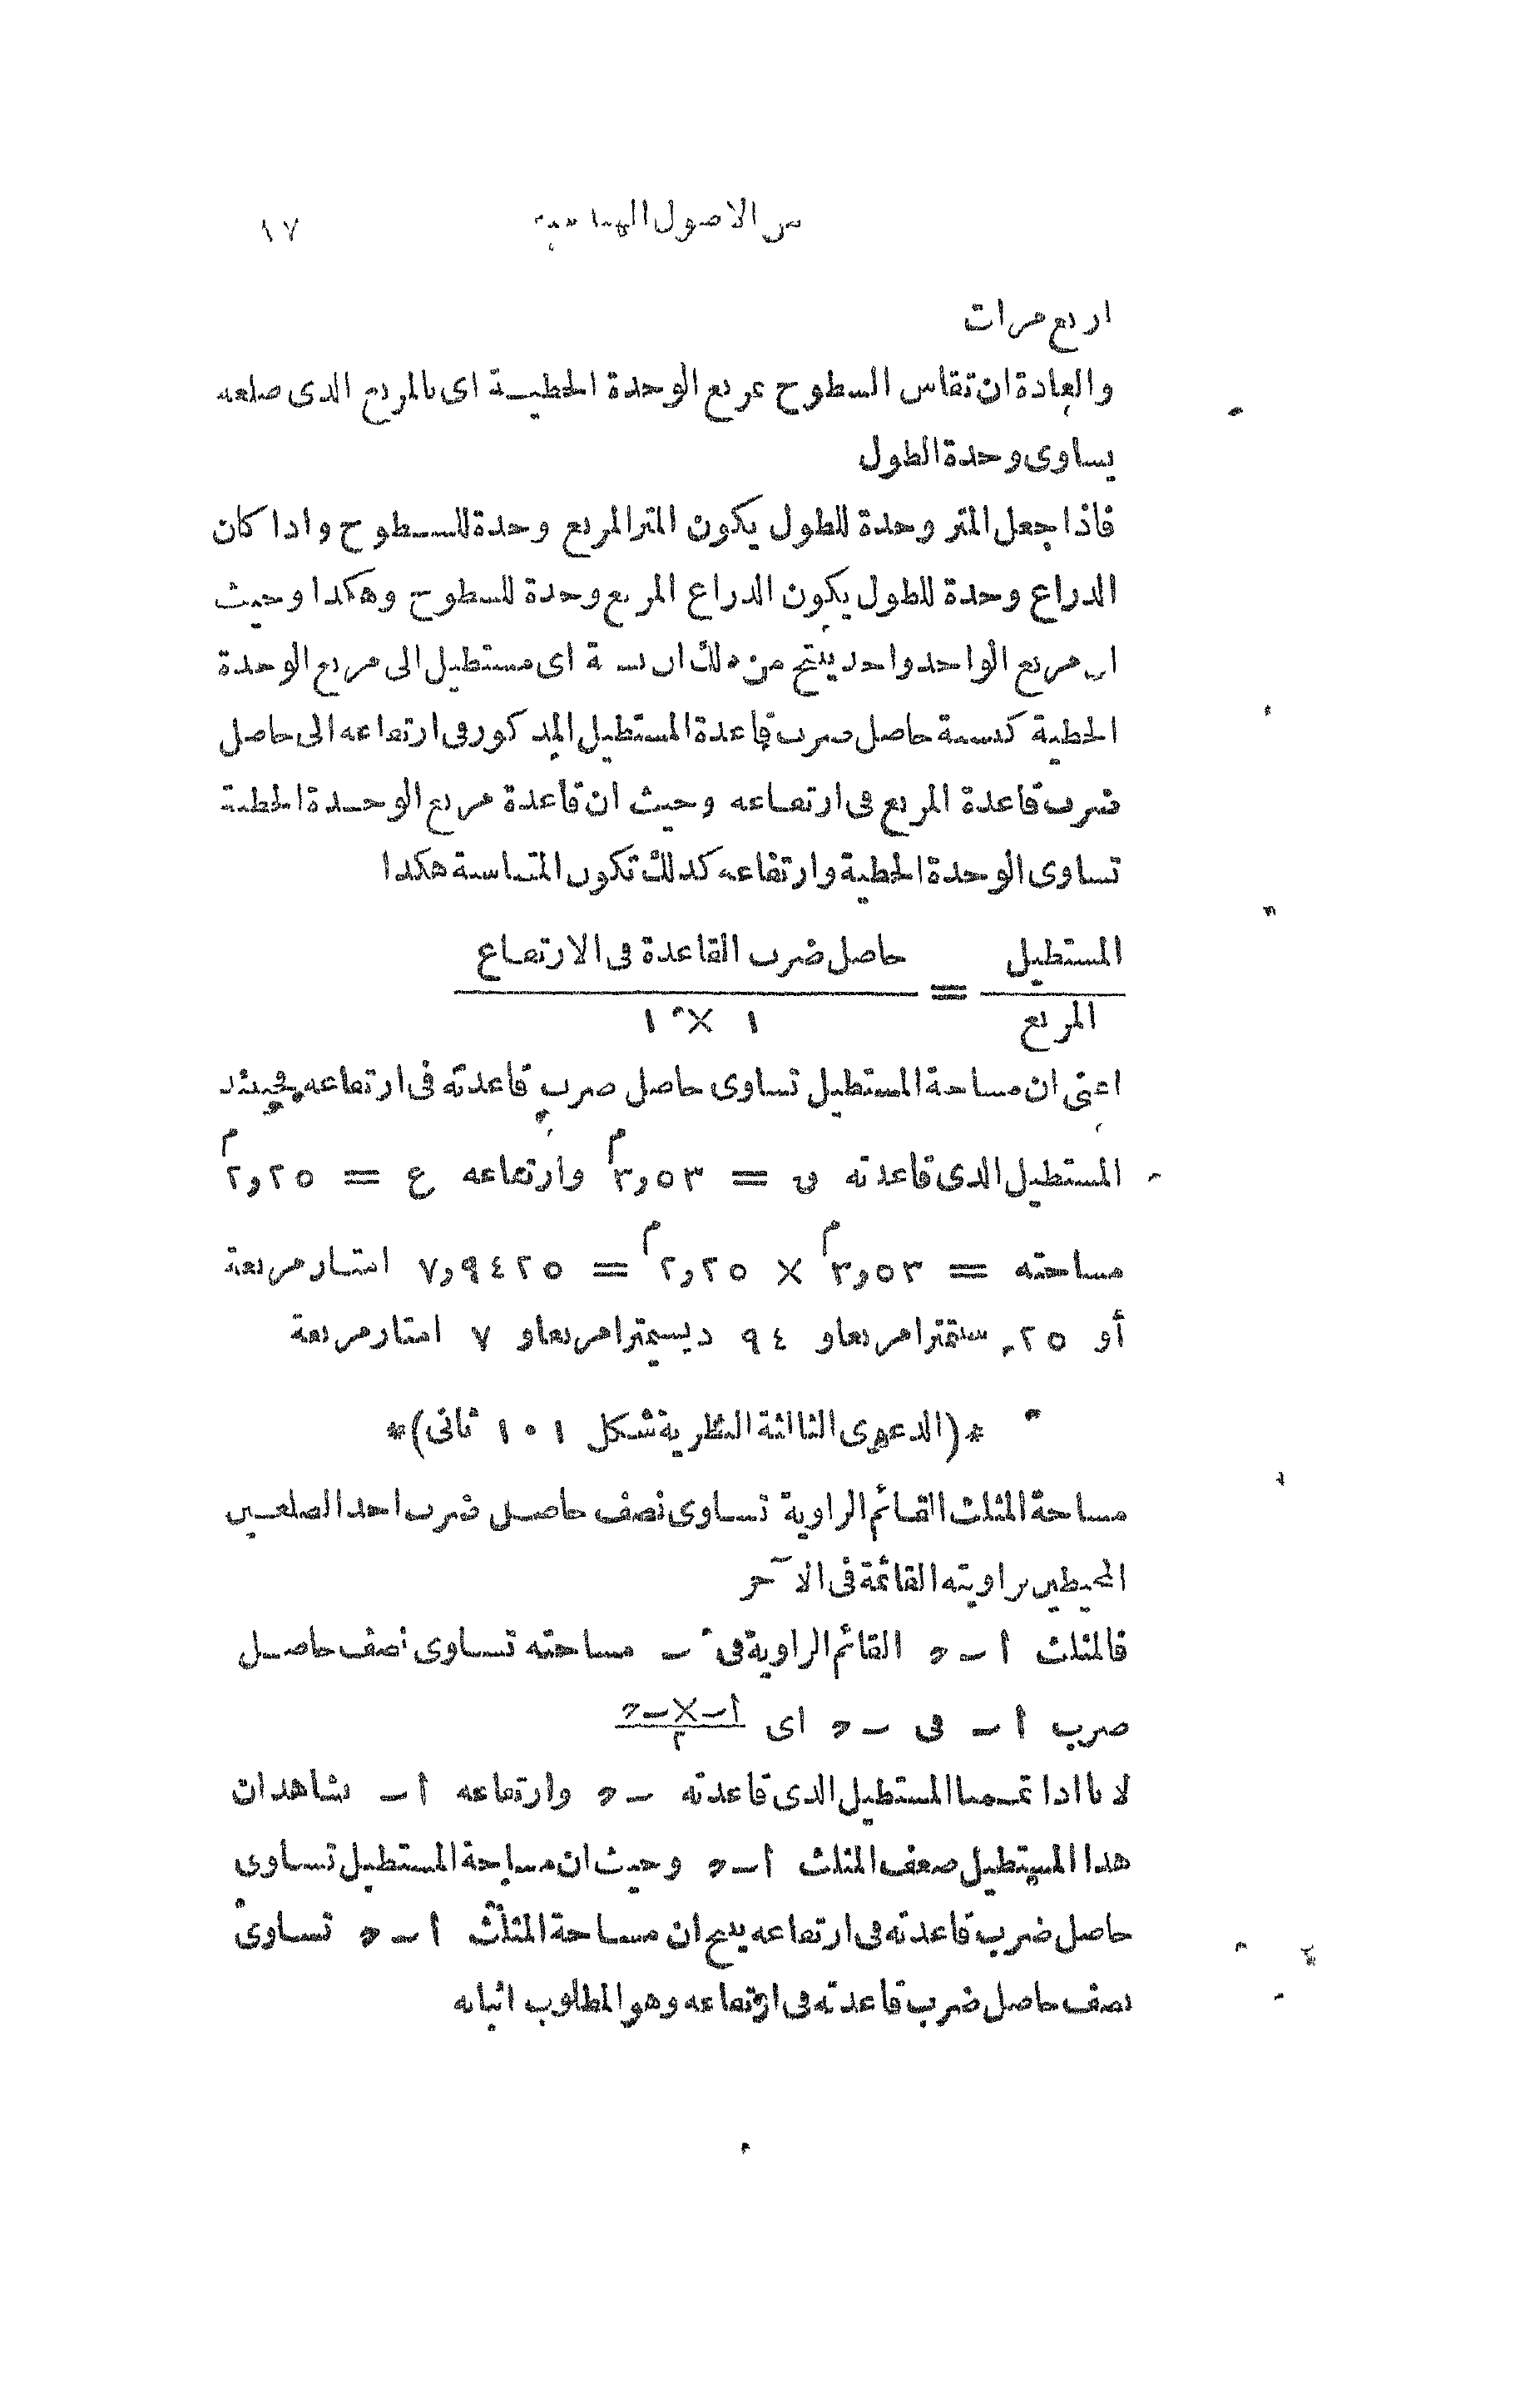 من الاصول الهندسية ١٧
اربع مرات
والعادة ان تقاس السطوح بمربع الوحدة الخطيـة اى بالمربع الذى ضلعه
يساوى وحدة الطول
فاذا جعل المتر وحدة للطول يكون المتر المربع وحدة للسـطوح واذا كان
الذراع وحدة للطول يكون الذراع المربع وحدة للسطوح وهكذا وحيث
ان مربع الواحد واحد ينتج من ذلك ان نسـبة اى مستطيل الى مربع الوحدة
الخطية كنسبة حاصل ضرب قاعدة المستطيل المذكور فى ارتفاعه الى حاصل
ضرب قاعدة المربع فى ارتفـاعه وحيث ان قاعدة مربع الوحـدة الخطية
تساوى الوحدة الخطية وارتفاعه كذلك تكون المتناسبة هكذا
المستطيل = حاصل ضرب القاعدة فى الارتفـاع
المربع ١ × ١
اعنى ان مساحة المستطيل تساوى حاصل ضرب قاعدته فى ارتفاعه فحينئذ
المستطيل الذى قاعدته ق = ٣,٥٣م وارتفاعه ع = ٢,٢٥م
مساحته = ٣,٥٣م × ٢,٢٥م = ٧,٩٤٢٥ امتـار مربعة
أو ٢٥ سنتمترا مربعا و ٩٤ ديسيمترا مربعا و ٧ امتار مربعة
*(الدعوى الثالثة النظرية شكل ١٠١ ثانى)*
مساحة المثلث القـائم الزاوية تسـاوى نصف حاصـل ضرب احد الضلعـين
المحيطين بزاويته القائمة فى الآخر
فالمثلث أ ب ج القائم الزاوية فى ب مساحته تسـاوى نصف حاصـل
ضرب أ ب فى ب ج اى أب×ب ج
٢
لانا اذا تممـنا المستطيل الذى قاعدته ب ج وارتفاعه أ ب نشاهد ان
هذا المستطيل ضعف المثلث أ ب ج وحيث ان مساحة المستطيل تسـاوى
حاصل ضرب قاعدته فى ارتفاعه ينتج ان مسـاحة المثلث أ ب ج تسـاوى
نصف حاصل ضرب قاعدته فى ارتفاعه وهو المطلوب اثباته